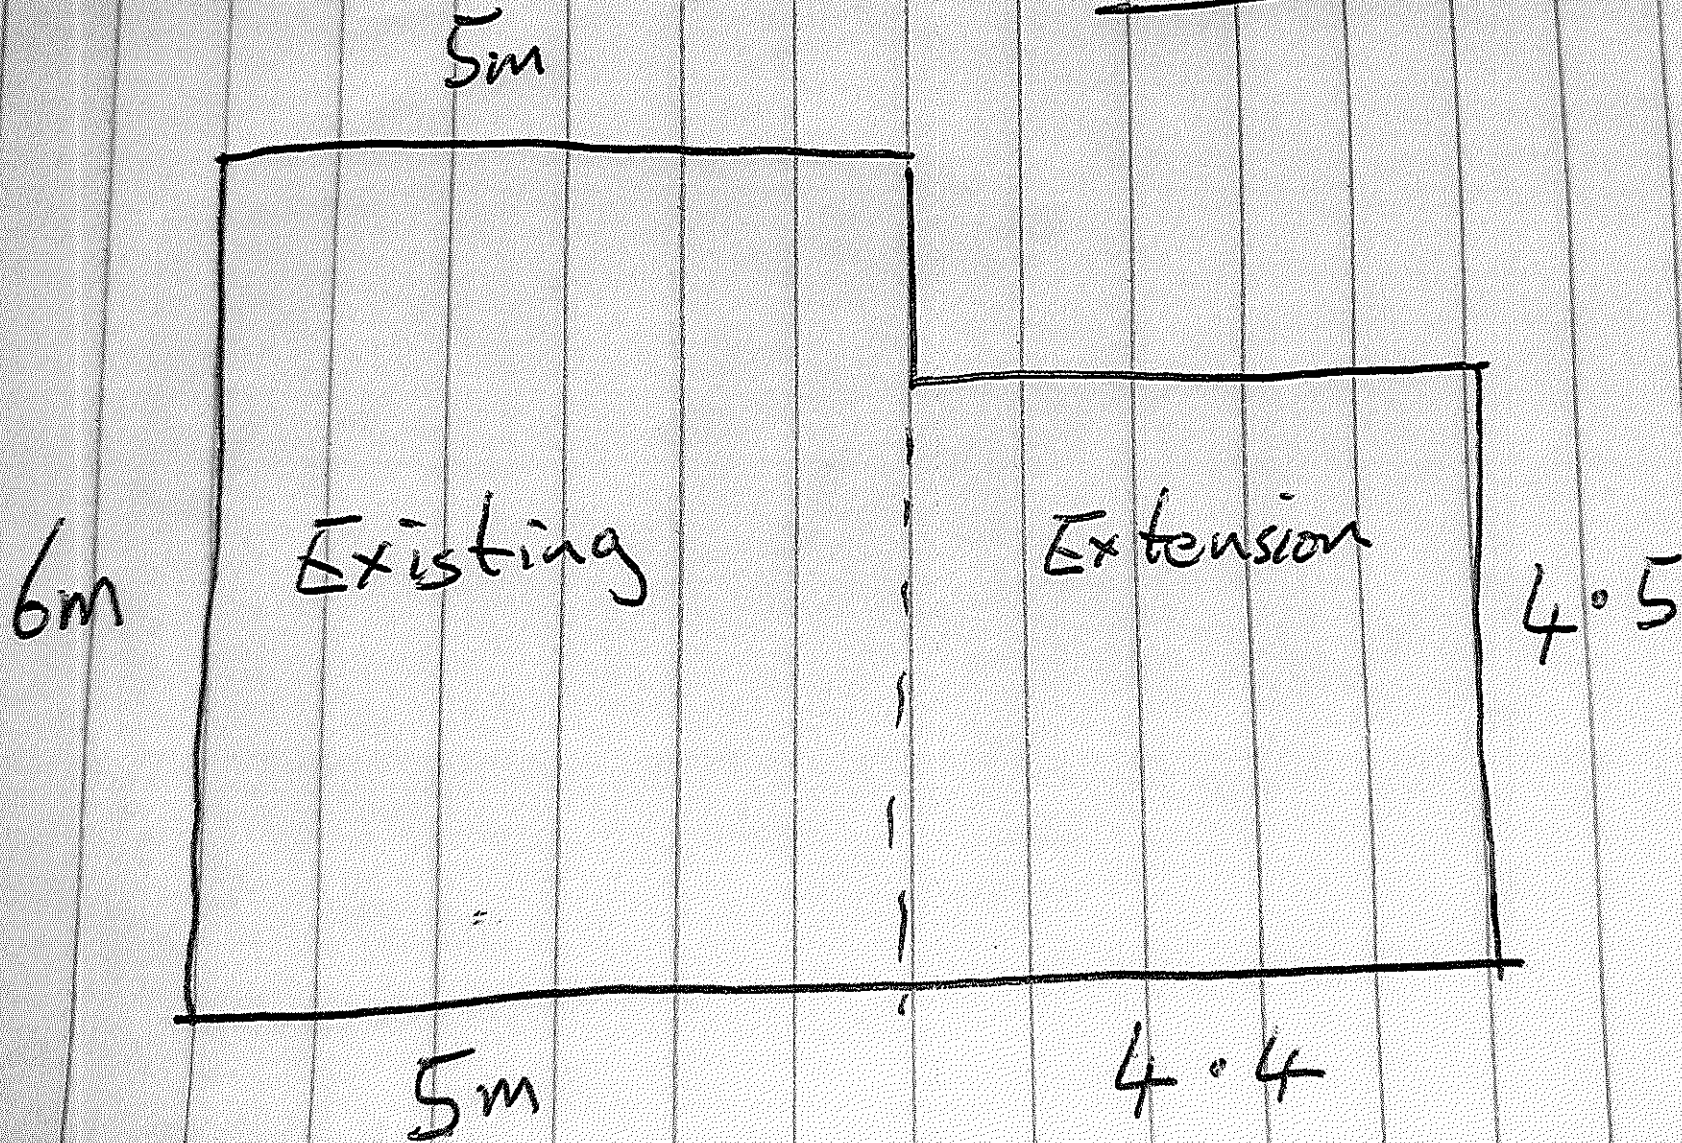 5m
Existing
Extension
6m
4.5
5m
4.4